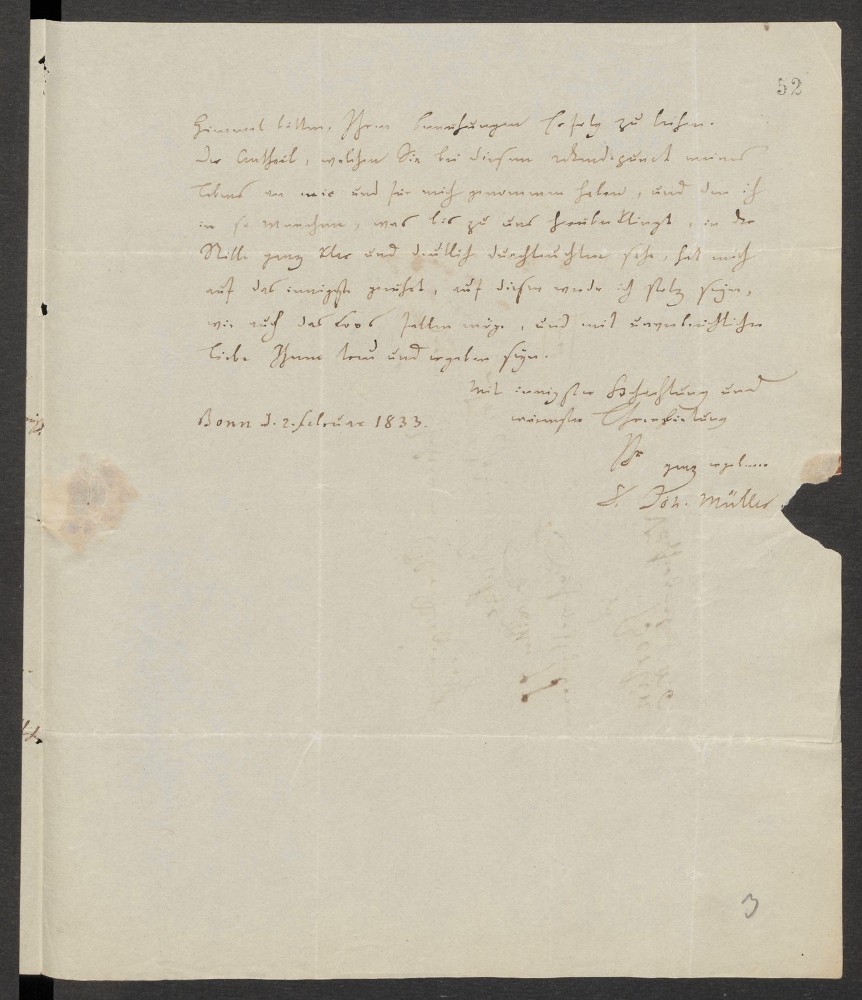 52
Himmel bitten, Ihren Bemühungen Erfolg zu leihen.
Der Antheil, welchen Sie bei diesem Wendepunct meines
Lebens an mir und für mich genommen haben, und den ich
in so manchem, was bis zu uns herüberklingt, in der
Stille ganz klar und deutlich durchleuchten sehe, hat mich
auf das innigste gerührt, auf diesen werde ich stolz seyn,
wie auch das Loos fallen möge, und mit unverbrüchlicher
Liebe Ihnen treu und ergeben seyn.
Mit innigster Hochachtung und
wärmster Ehrerbietung
Bonn d. 2. Februar 1833.
Ihr ganz ergebener
D. Joh. Müller
3